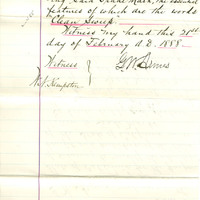 said Trade Mark, the essential
features of which are the words
"Clean Sweep"
Witness my hand this 21st
day of February A.D. 1888.
Witness